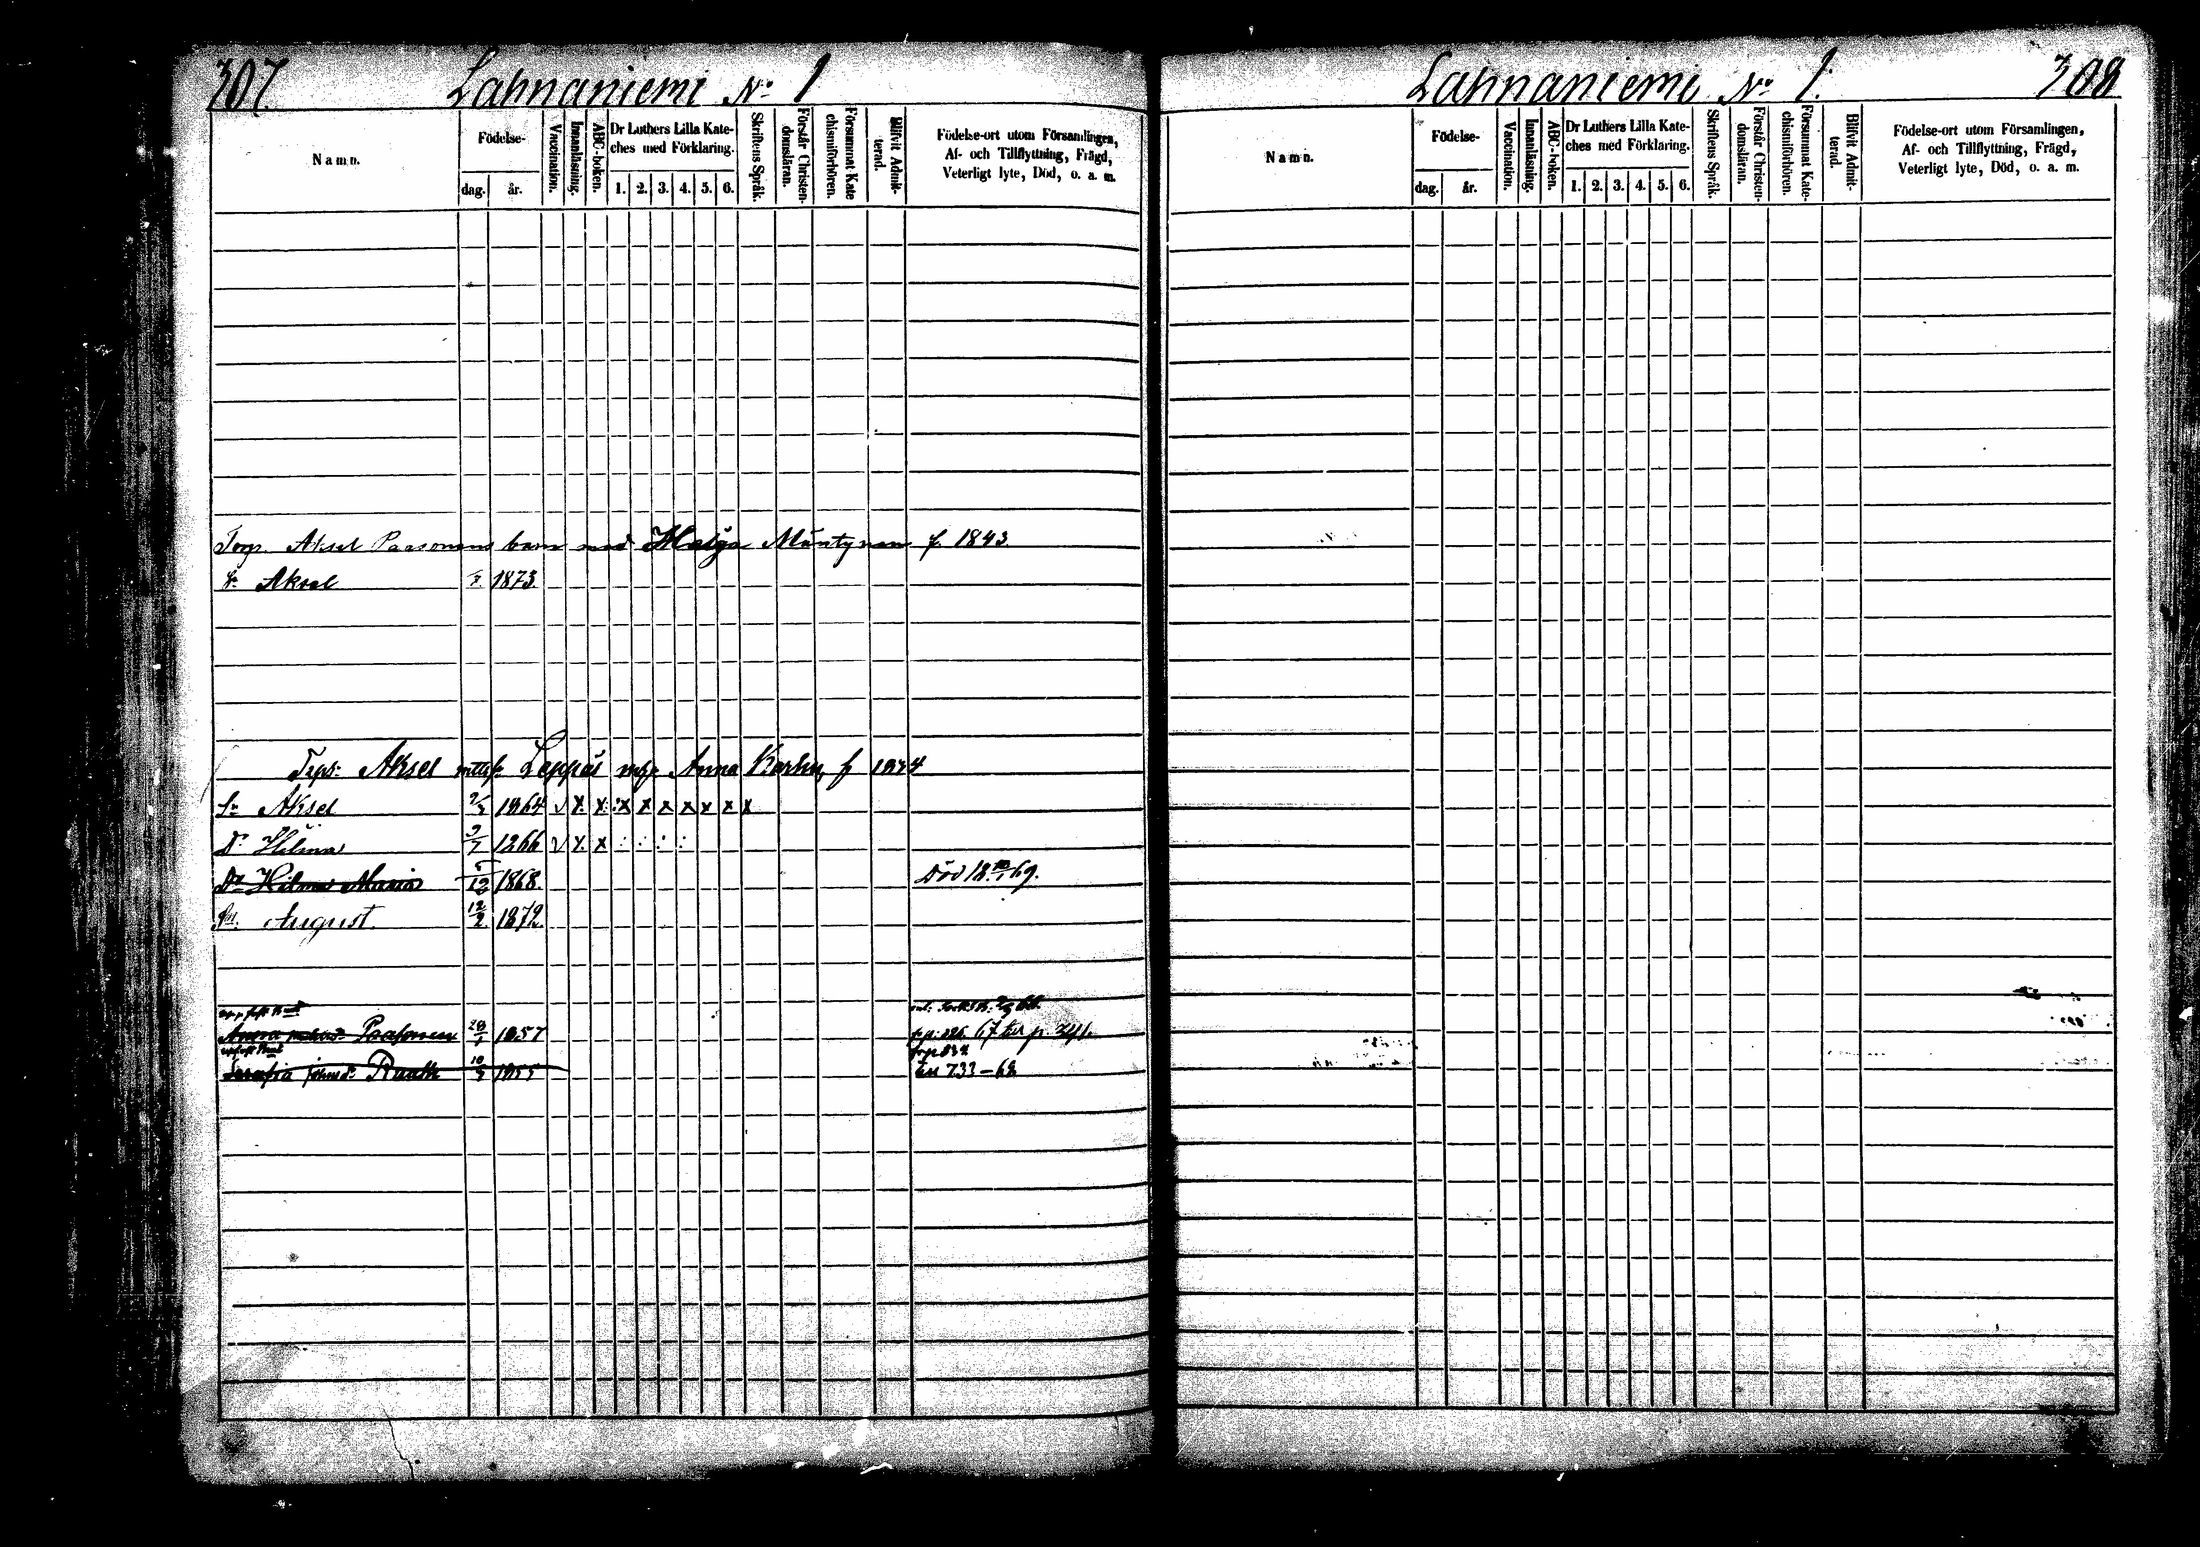 307.
Lahnaniemi No 1
Namn.
Födelse-
dag.
år.
Vaccination.
Innanläsning.
ABC-boken.
Dr Luthers Lilla Kate-
ches med Förklaring.
1. 2. 3. 4. 5. 6.
Skriftens Språk.
Förstår Christen-
domsläran.
Försummat Kate
chismiförhören.
Blifvit Admit-
terad.
Födelse-ort utom Församlingen,
Af- och Tillflyttning, Frägd,
Veterligt lyte, Död, o. a. m.
Aksel Paasonens barn med Maija Mäntynen f. 1843.
Aksel 1873.
Aksel Leppäs Anna Karhu f 1834
Sn Aksel 1864 v x x x x x x x x x
Dr Hilma 9/7 1266 v x x : : : :
Dr Hilma Maria 1868. Död 69.
Sn. August. 12/2. 1872.
Anna Paasonen 1857 67 p. 244.
Serafia Raatk 10/3 1855 733–68
Lahnaniemi No 1.
308
Namn.
Födelse-
dag.
år.
Vaccination.
Innanläsning.
ABC-boken.
Dr Luthers Lilla Kate-
ches med Förklaring.
1. 2. 3. 4. 5. 6.
Skriftens Språk.
Förstår Christen-
domsläran.
Försummat Kate-
chismiförhören.
Blifvit Admit-
terad.
Födelse-ort utom Församlingen,
Af- och Tillflyttning, Frägd,
Veterligt lyte, Död, o. a. m.